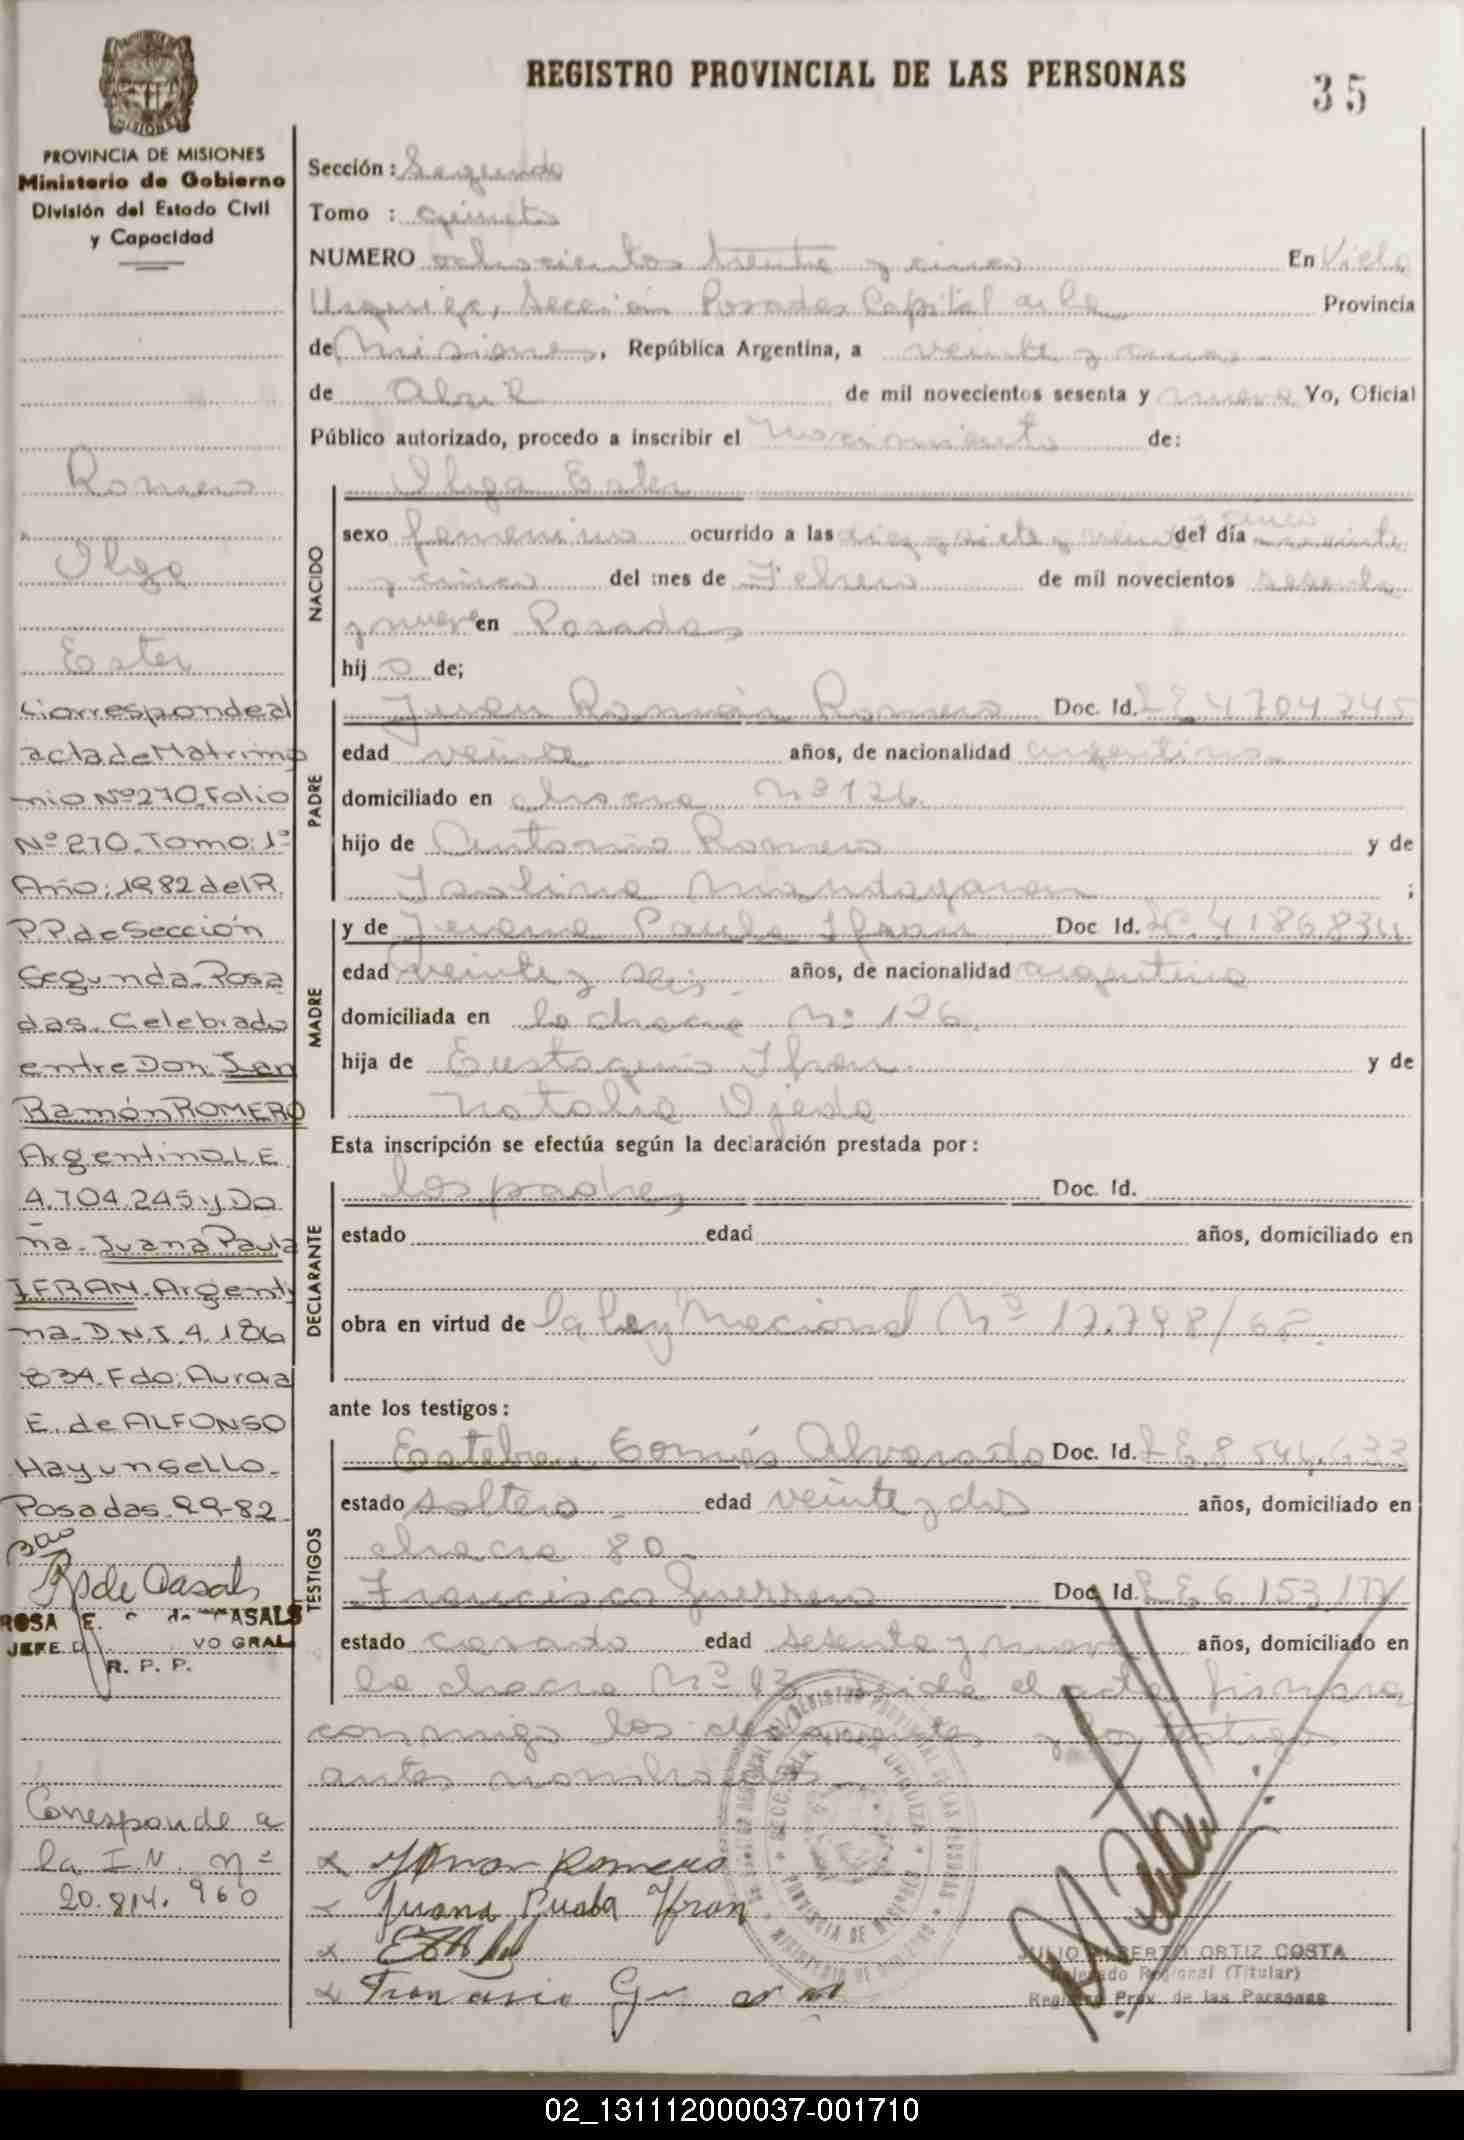 REGISTRO PROVINCIAL DE LAS PERSONAS
35
PROVINCIA DE MISIONES
Ministerio de Gobierno
División del Estado Civil
y Capacidad
Sección: Segunda
Tomo : quinto
NUMERO ochocientos treinta y cinco En Villa
Urquiza, Sección Posadas Capital de la Provincia
de Misiones, República Argentina, a veinte y cinco
de Abril de mil novecientos sesenta y nueve Yo, Oficial
Público autorizado, procedo a inscribir el Nacimiento de:
Olga Ester
NACIDO
sexo femenino ocurrido a las diez y siete y veinte y cinco del día veinte
y cinco del mes de Febrero de mil novecientos sesenta
y nueve en Posadas
hij o de;
PADRE
Juan Ramón Romero Doc. Id. L.E. 4704245
edad veinte años, de nacionalidad argentino
domiciliado en chacra Nº 126
hijo de Antonio Romero y de
Isolina ;
MADRE
y de Juana Paula Ifran Doc Id. 4186834
edad veinte y seis años, de nacionalidad argentina
domiciliada en la chacra Nº 126.
hija de Eustaquio Ifran y de
Natalia Ojeda
Esta inscripción se efectúa según la declaración prestada por:
DECLARANTE
los padres Doc. Id.
estado edad años, domiciliado en
obra en virtud de la ley Nacional Nº 17.798/68.
ante los testigos:
TESTIGOS
Esteban Gomés Alvarado Doc. Id. L.E. 8.544.633
estado soltero edad veinte y dos años, domiciliado en
chacra 80
Francisco Guerrero Doc. Id. L.E. 6.153.177
estado casado edad sesenta y nueve años, domiciliado en
la chacra Nº 13 leida el acta firman
conmigo los declarantes y los testigos
antes nombrados
Juan Romero
Juana Puala Ifran
Francisco
JULIO ALBERTO ORTIZ COSTA
Delegado Regional (Titular)
Registro Prov. de las Personas
Romero
Olga
Ester
Corresponde al
acta de Matrimo
nio Nº 270. Folio
Nº 270. Tomo: 1º
Año: 1982 del R.
P.P. de Sección
Segunda. Posa
das. Celebrado
entre Don Jan
Ramón ROMERO
Argentino L.E.
4.704.245 y Do
ña. Juana Paula
IFRAN. Argenti
na. D.N.I. 4.186
834. Fdo: Aurora
E. de ALFONSO
Hay un sello.
Posadas. 9-9-82
R de Casals
ROSA E. de CASALS
JEFE VO GRAL
R. P. P.
Corresponde a
la I.N. nº
20.814.960
02_131112000037-001710